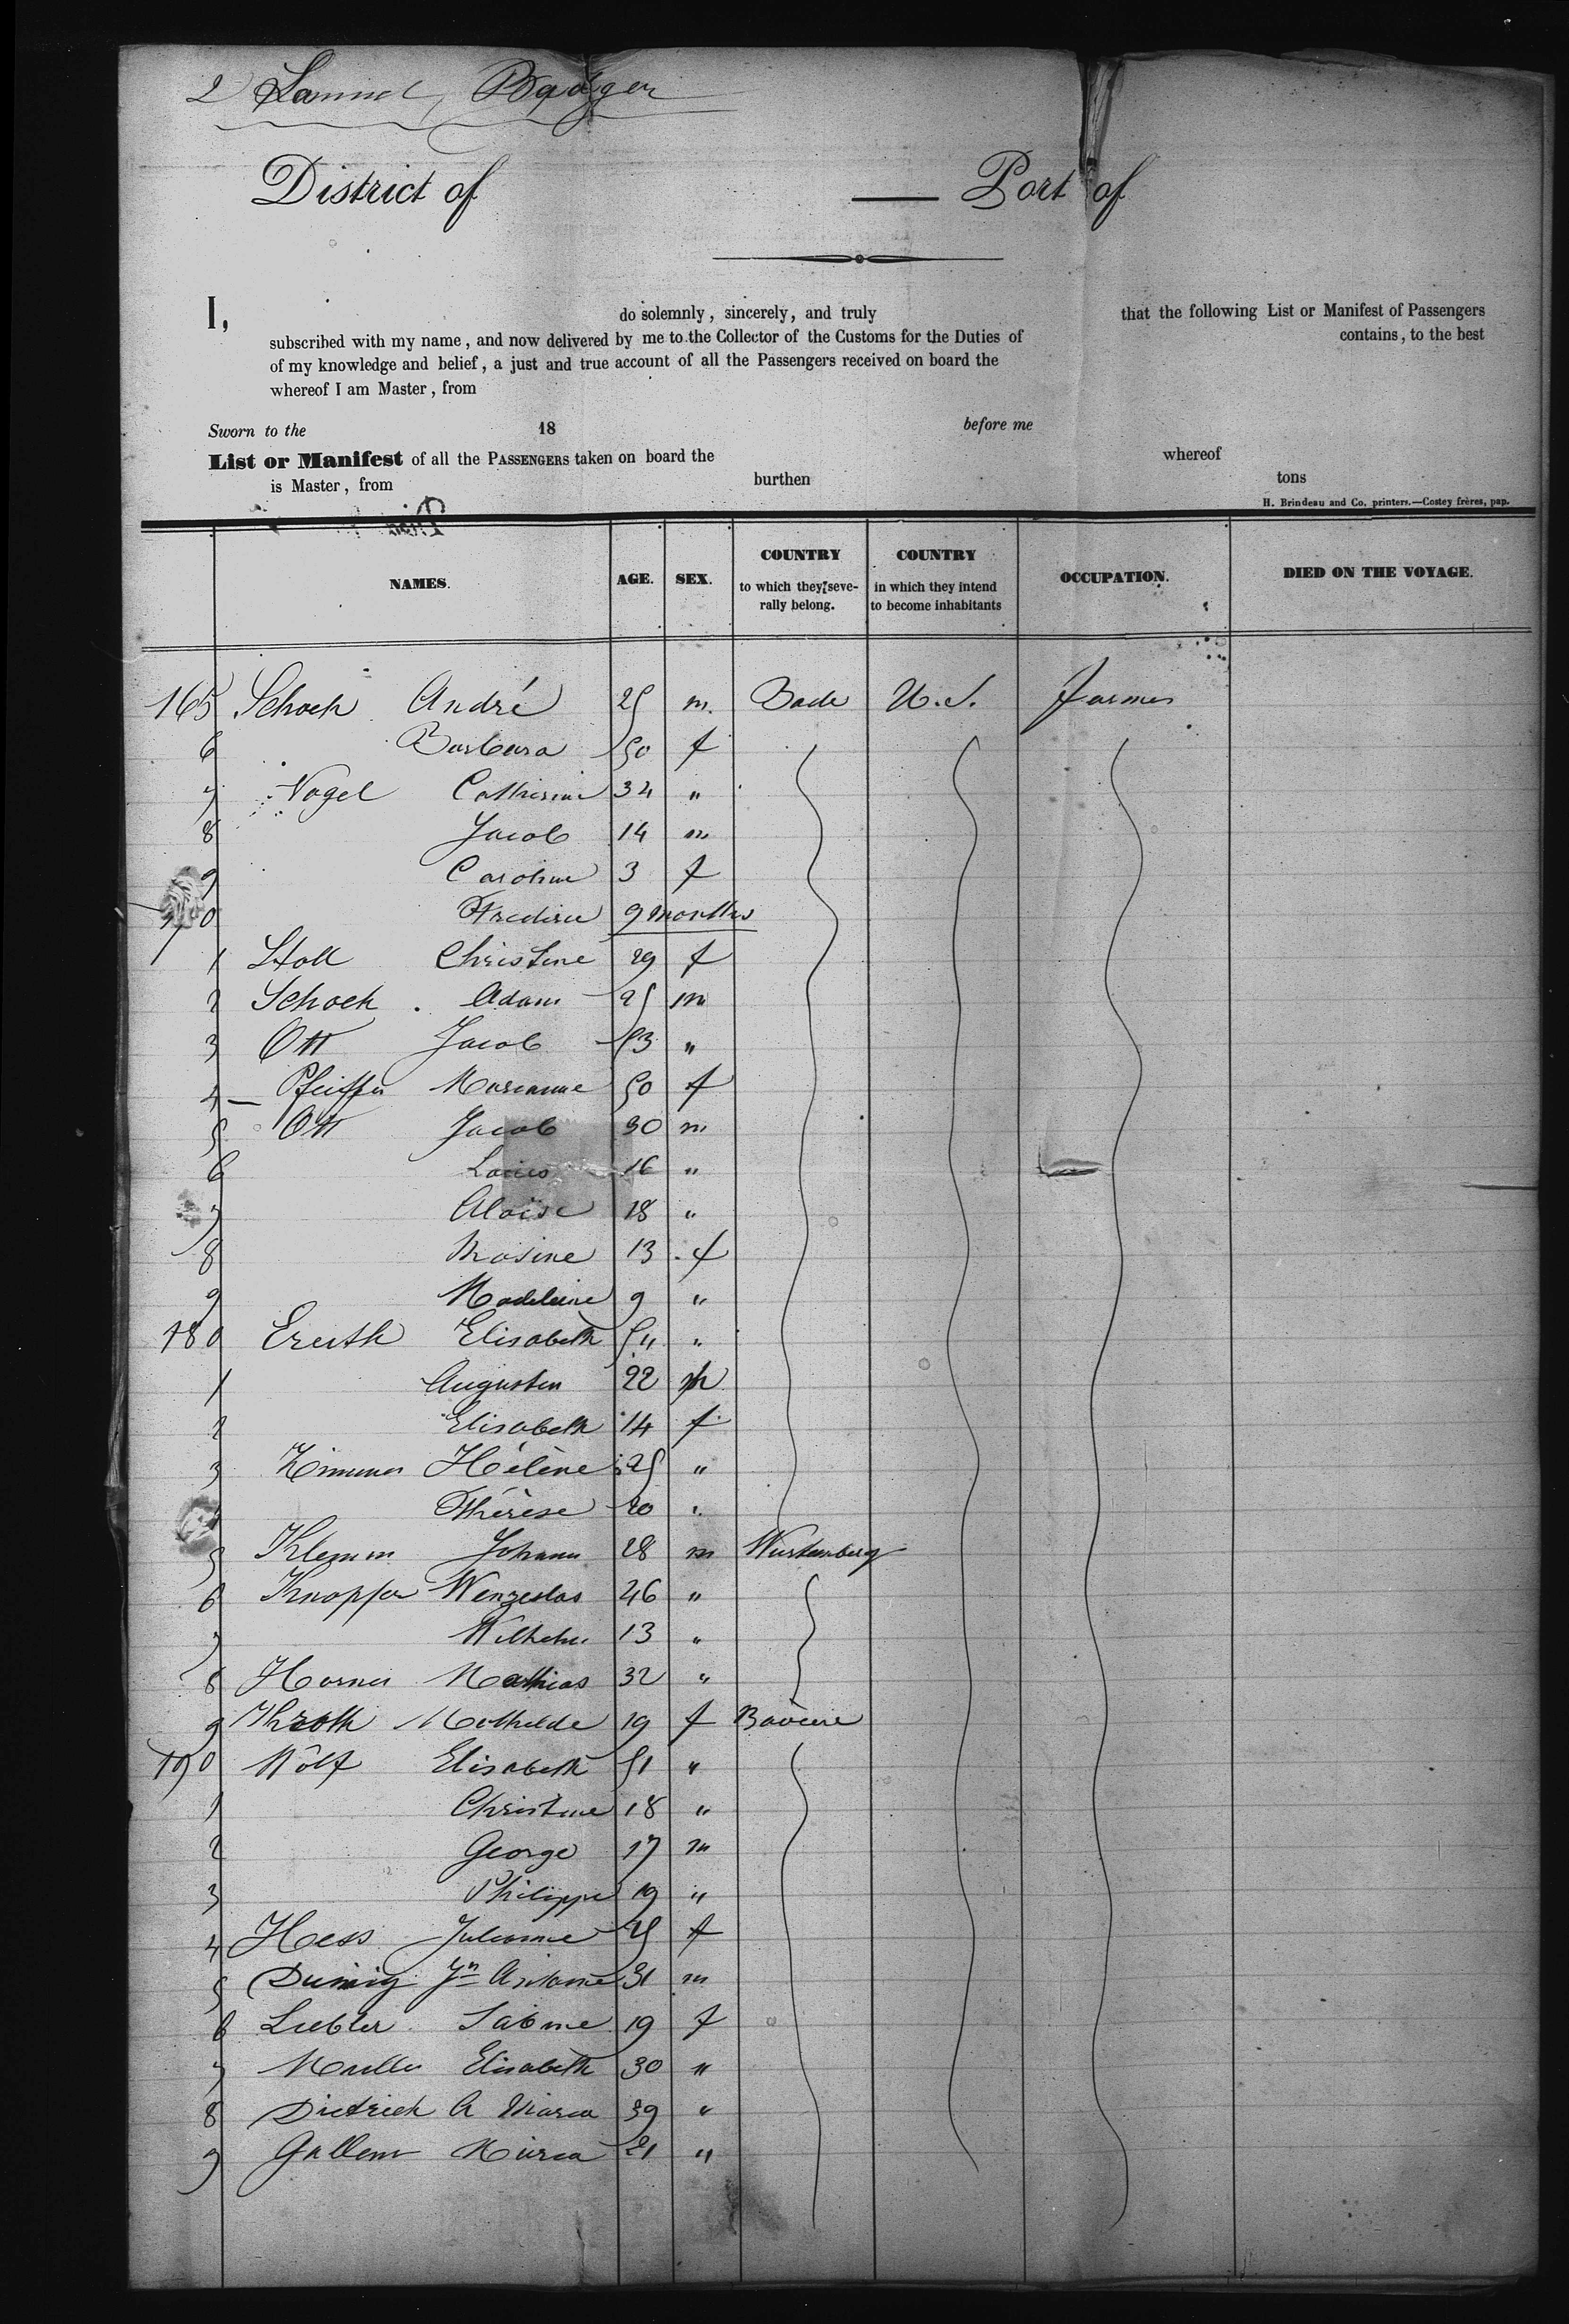 2 Samuel Badger
District of — Port of
I, do solemnly, sincerely, and truly that the following List or Manifest of Passengers
subscribed with my name, and now delivered by me to the Collector of the Customs for the Duties of contains, to the best
of my knowledge and belief, a just and true account of all the Passengers received on board the
whereof I am Master, from
Sworn to the 18 before me
List or Manifest of all the PASSENGERS taken on board the whereof
is Master, from burthen tons
H. Brindeau and Co. printers.—Costey frères, pap.
NAMES. AGE. SEX. COUNTRY to which they seve-rally belong. COUNTRY in which they intend to become inhabitants OCCUPATION. DIED ON THE VOYAGE.
165 Schoch André 25 m. Bade U.S. Farmer
6 Barbara 50 f
7 Nagel Catherine 34 "
8 Jacob 14 m
9 Caroline 3 f
170 9 months
1 Stoll Christine 29 f
2 Schoch Adam 25 m
3 Ott Jacob 53 "
4 Pfeiffer Marianne 50 f
5 Ott Jacob 30 m
6 Louis 16 "
7 Aloise 18 "
8 Rosine 13 f
9 Madeleine 9 "
180 Elisabeth 54 "
1 Augustin 22 m
2 Elisabeth 14 f
3 Zimmer Hélène 25 "
Thérèse 20 "
5 Klemm Johann 28 m Wurtemberg
6 Wenzeslas 46 "
7 Wilhelm 13 "
8 Horner Mathias 32 "
9 Mathilde 19 f Baviere
190 Wolf Elisabeth 51 "
1 Christine 18 "
2 George 17 m
3 Philippe 19 "
4 Hess Julianne 25 f
5 Jn Antoine 31 m
6 Liebler Sabine 19 f
7 Muller Elisabeth 30 "
8 Dietrich A Maria 39 "
9 Maria 21 "